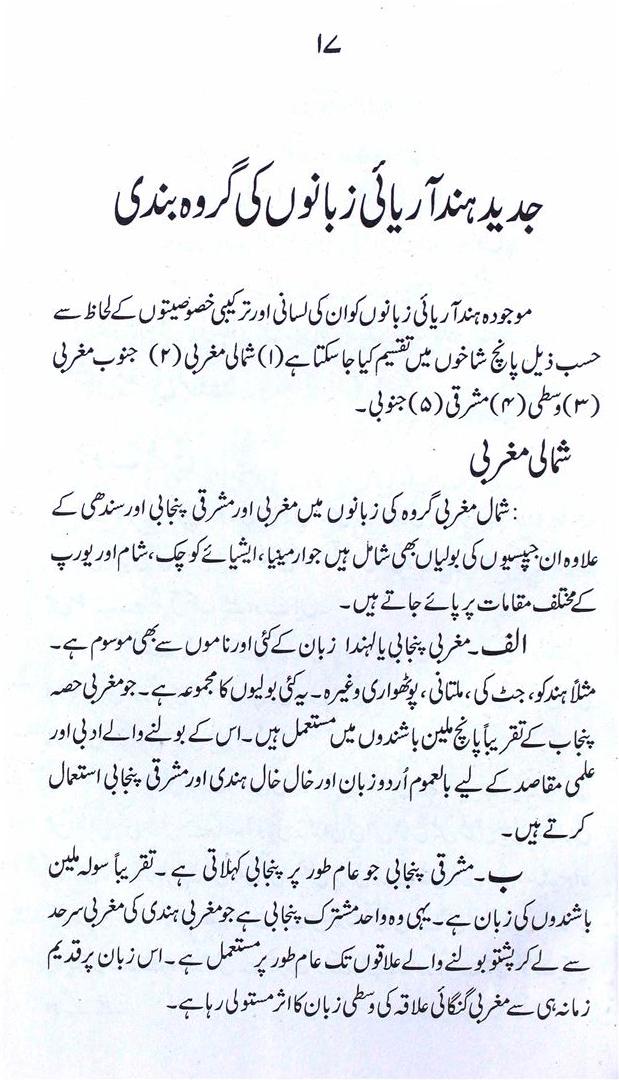 ۱۷
جدید ہند آریائی زبانوں کی گروہ بندی
موجودہ ہند آریائی زبانوں کو ان کی لسانی اور ترکیبی خصوصیتوں کے لحاظ سے
حسب ذیل پانچ شاخوں میں تقسیم کیا جا سکتا ہے (۱) شمالی مغربی (۲) جنوب مغربی
(۳) وسطی (۴) مشرقی (۵) جنوبی۔
شمالی مغربی
: شمال مغربی گروہ کی زبانوں میں مغربی اور مشرقی پنجابی اور سندھی کے
علاوہ ان جپسیوں کی بولیاں بھی شامل ہیں جو ارمینیا، ایشیائے کوچک، شام اور یورپ
کے مختلف مقامات پر پائے جاتے ہیں۔
الف۔ مغربی پنجابی یا لہندا زبان کے کئی اور ناموں سے بھی موسوم ہے۔
مثلاً ہندکو، جٹ کی، ملتانی، پوٹھواری وغیرہ۔ یہ کئی بولیوں کا مجموعہ ہے۔ جو مغربی حصہ
پنجاب کے تقریباً پانچ ملین باشندوں میں مستعمل ہیں۔ اس کے بولنے والے ادبی اور
علمی مقاصد کے لیے بالعموم اُردو زبان اور خال خال ہندی اور مشرقی پنجابی استعمال
کرتے ہیں۔
ب۔ مشرقی پنجابی جو عام طور پر پنجابی کہلاتی ہے۔ تقریباً سولہ ملین
باشندوں کی زبان ہے۔ یہی وہ واحد مشترک پنجابی ہے جو مغربی ہندی کی مغربی سرحد
سے لے کر پشتو بولنے والے علاقوں تک عام طور پر مستعمل ہے۔ اس زبان پر قدیم
زمانہ ہی سے مغربی گنگائی علاقہ کی وسطی زبان کا اثر مستولی رہا ہے۔